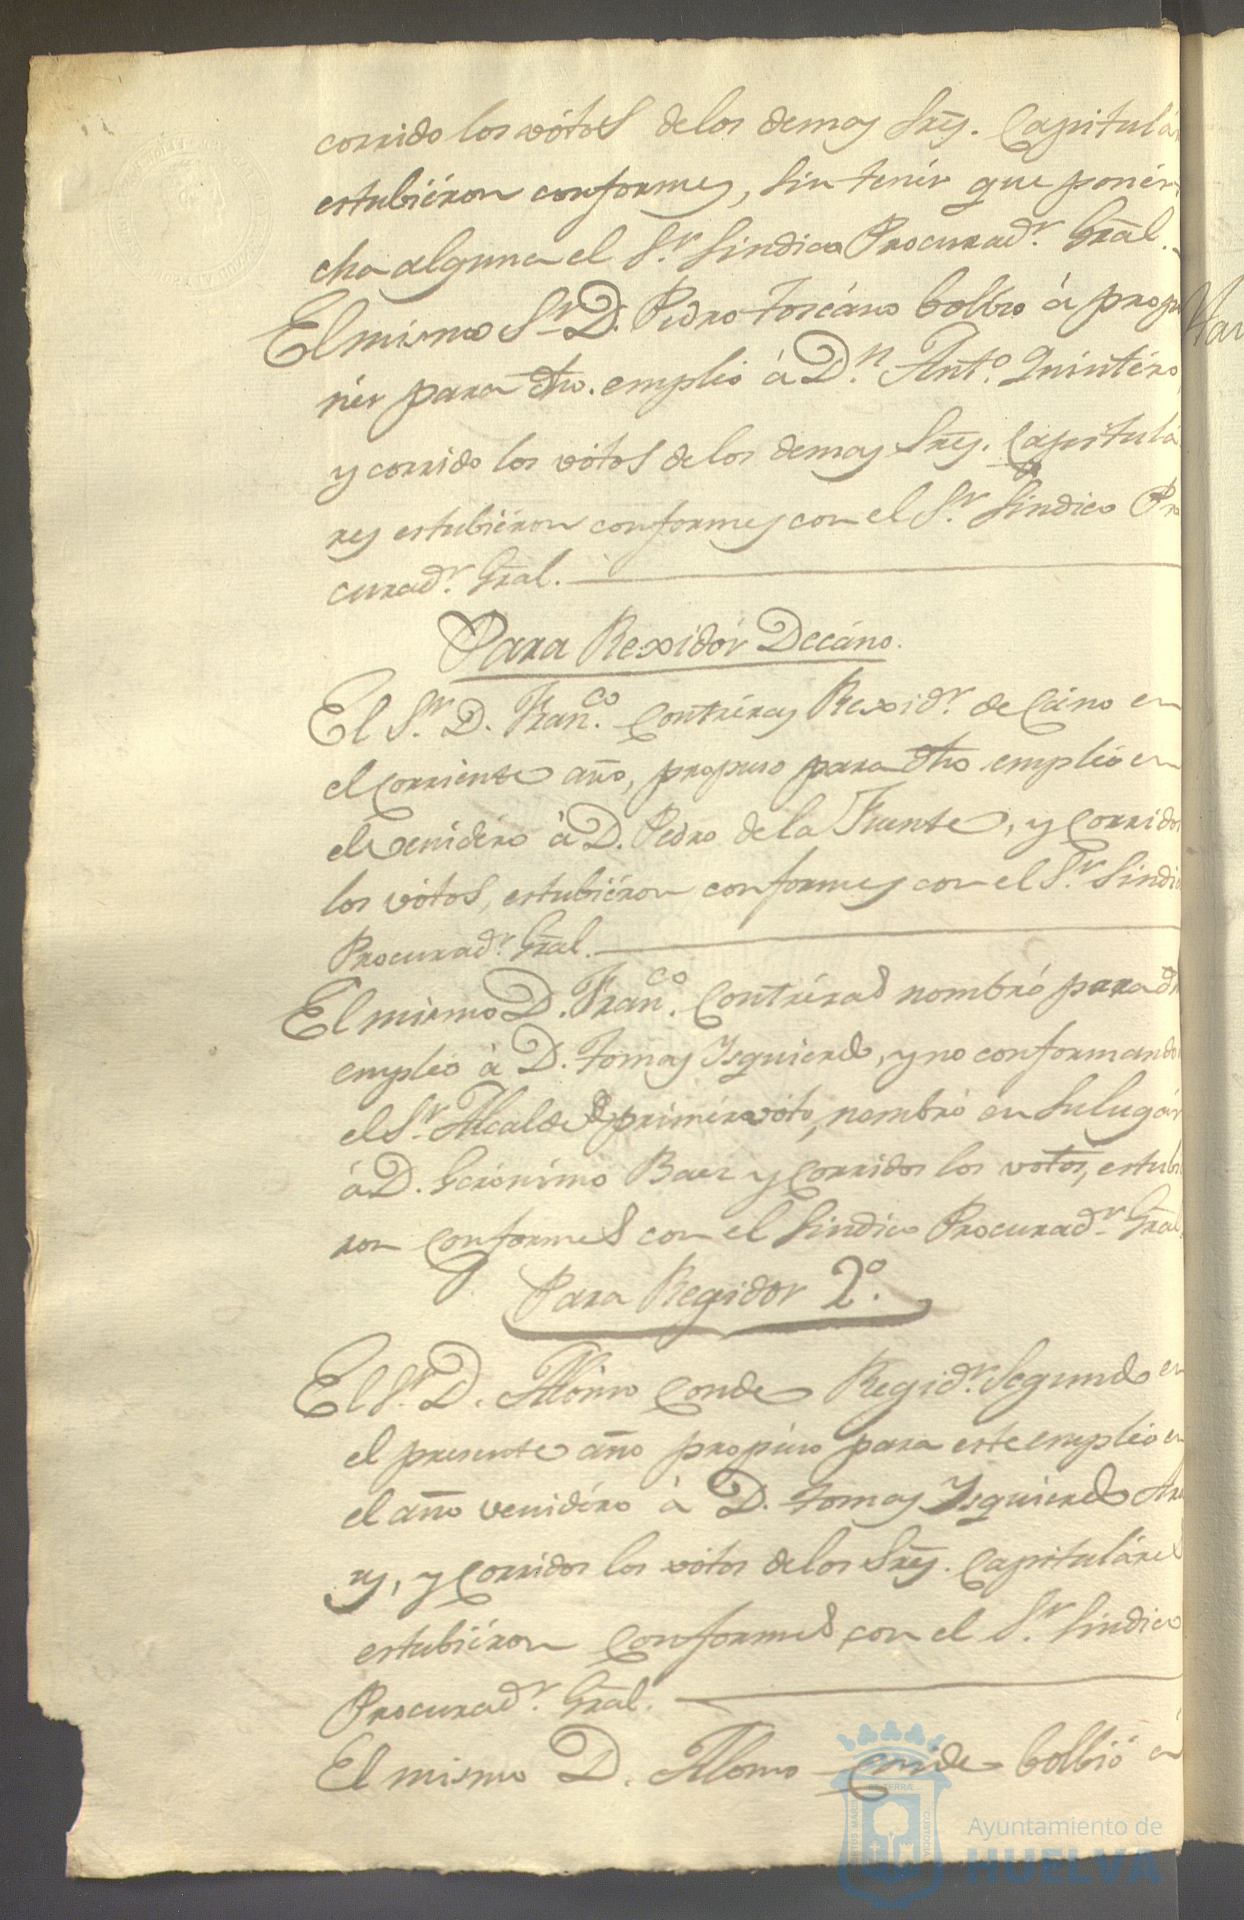 corrido los vótos delos demas Sres. Capitulár
estubiéron conformes, sin tenér que ponér
cha alguna el Sr. Sindico Procuradr. Gral.
El mismo Sr. D. Pedro Toscáno bolbió á propo
nér para dho. empléo á Dn. Anto. Quintéro,
y corrido los vótos delos demas Sres. Capitulá
res estubiéron conformes con el Sr. Sindico Pro
curadr. Gral.
Para Rexidór Decáno.
El Sr. D. Franco. Contréras Rexidr. decáno en
el corriente año, propuso para dho empléo en
el venidéro á D. Pedro de la Fuente, y corridos
los vótos, estubiéron conformes con el Sr. Sindic
Procuradr. Gral.
El mismo D. Franco. Contréras nombró para dh
empléo á D. Tomas Ysquierdo, y no conformando
el Sr. Alcalde de primér voto, nombró en su lugár
á D. Gerónimo Baez y corridos los votos, estubi
ron conformes con el Sindico Procuradr. Gral.
Para Regidor 2o.
El Sr. D. Alonso Conde Regidr. Segundo en
el presente año propúso para este empléo en
el año venidéro á D. Tomas Ysquierdo
y, y corridos los votos delos Sres. Capituláres
estubiéron conformes con el Sr. Sindico
Procuradr. Gral.
El mismo D. Alonso Conde bolbió á
Ayuntamiento de
HUELVA